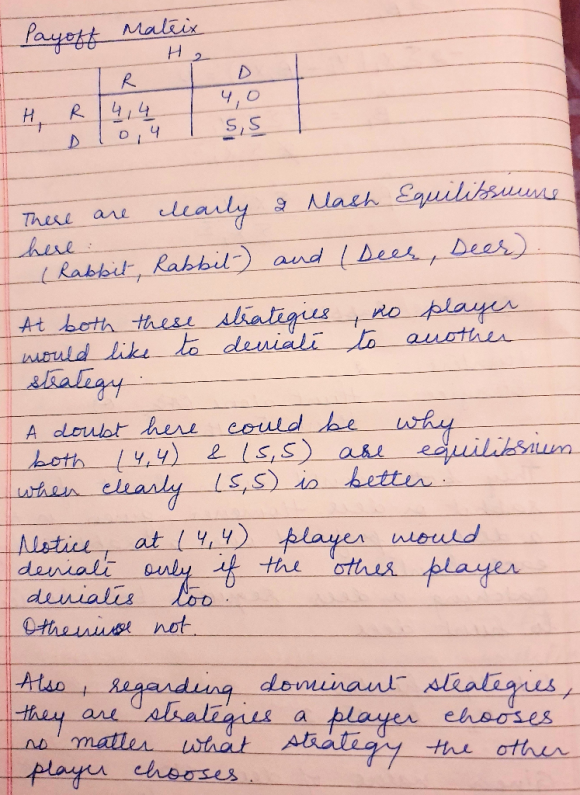 Payoff Matrix
H2
R D
H1 R 4,4 4,0
D 0,4 5,5
There are clearly 2 Nash Equilibriums
here:
(Rabbit, Rabbit) and (Deer, Deer).
At both these strategies, no player
would like to deviate to another
strategy.
A doubt here could be why
both (4,4) & (5,5) are equilibrium
when clearly (5,5) is better.
Notice, at (4,4) player would
deviate only if the other player
deviates too.
Otherwise not.
Also, regarding dominant strategies,
they are strategies a player chooses
no matter what strategy the other
player chooses.